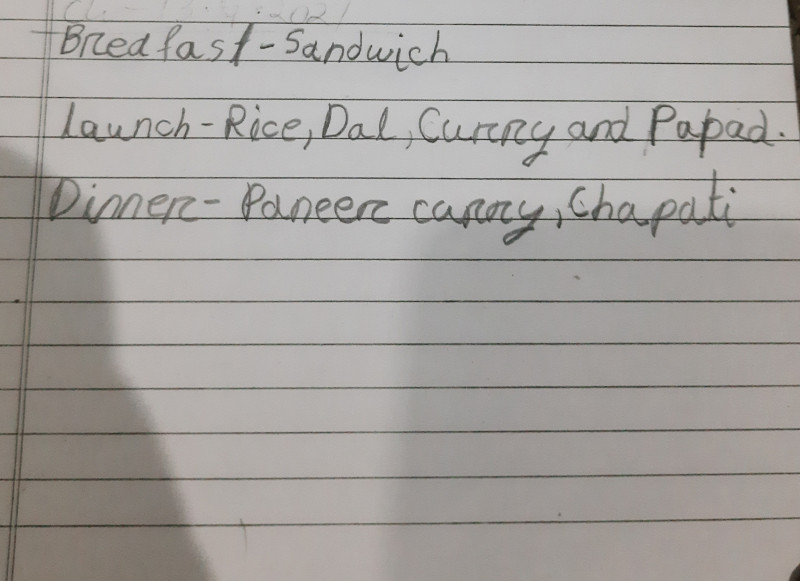 Bredfast-Sandwich
Launch-Rice, Dal, Curry and Papad.
Dinner- Paneer carry, Chapati